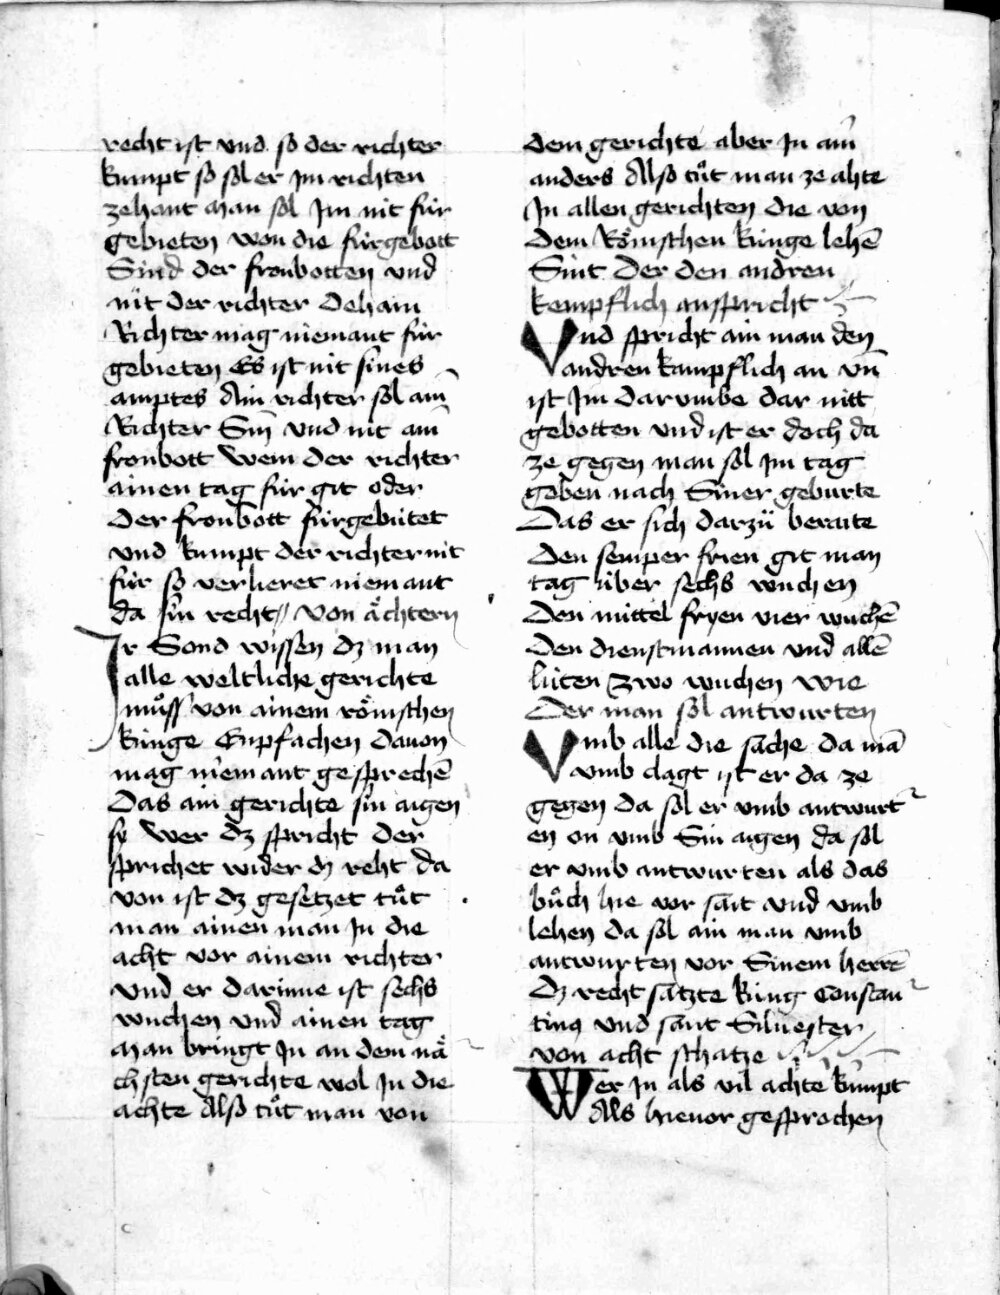 recht ist vnd so der richter
kumpt so sol er jm richten
zehant Man sol Jm nit für
gebieten won die fürgebott
Sind der fronbotten vnd
nüt der richter Dehain
Richter mag niemant für
gebieten Es ist nit sines
amptes Ain richter sol ain̄
Richter Sin̄ vnd nit ain̄
fronbott Wem der richter
ainen tag für git oder
Der fronbott fürgebütet
vnd kumpt der richter nit
für so verlieret niemant
da sin recht // Von ächtern
Ir Sond wissen dz man
alle weltliche gerichte
muͦss von ainem römschen
künge Enpfachen dauon
mag niemant gesprechē
Das ain gerichte sin aigen
sy Wer dz spricht Der
sprichet wider dz reht da
von ist dz gesetzet tuͦt
man ainen man Jn die
acht vor ainem richter
vnd er darinne ist sechs
wuchen vnd ainen tag
Man bringt Jn an dem nä
chsten gerichte wol Jn die
achte Also tuͦt man von
dem gerichte aber Jn ain̄
anders Also tuͦt man ze ahte
Jn allen gerichten die von
Dem Römschen künge lehē
Sint Der den andren
kempflich anspricht
Vnd spricht ain man den
andren kampflich an vn̄
ist Jm darvmbe dar nitt
gebotten vnd ist er doch da
ze gegen man sol jm tag
geben nach Siner geburte
Das er sich darzuͦ beraite
Den semper frien git man
tag über sechs wuchen
Den mittel fryen vier wuchē
Den dienstmannen vnd allē
lüten zwo wuchen wie
Der man sol antwurten
Vmb alle die sache da mā
vmb clagt ist er da ze
gegen da sol er vmb antwurt
en on vmb Sin aigen da sol
er vmb antwurten als das
buͦch hie vor sait vnd vmb
lehen da sol ain man vmb
antwurten vor Sinem herrē
Dz recht satzte küng Constan
tinq vnd sant Siluester
von acht schatze
Wer Jn als vil achte kumpt
Als hieuor gesprochen